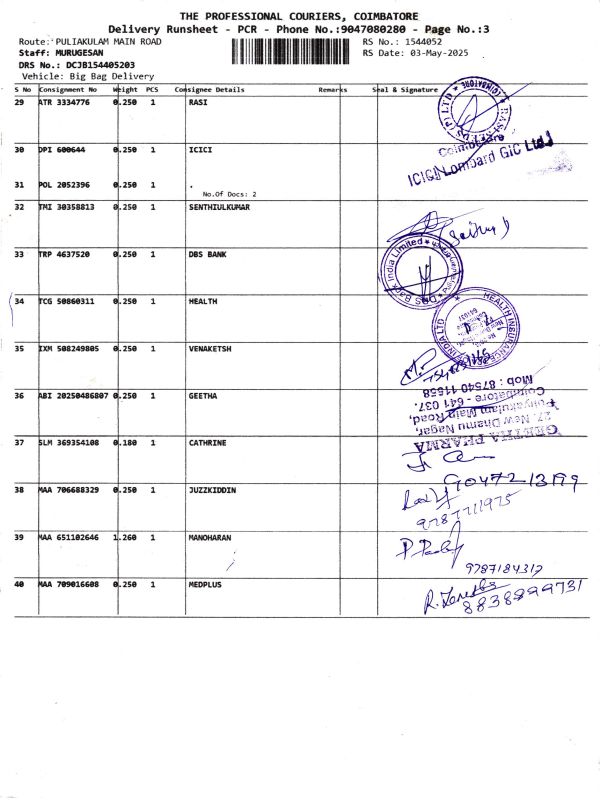 THE PROFESSIONAL COURIERS, COIMBATORE
Delivery Runsheet - PCR - Phone No.:9047080280 - Page No.:3
Route: PULIAKULAM MAIN ROAD RS No.: 1544052
Staff: MURUGESAN RS Date: 03-May-2025
DRS No.: DCJB154405203
Vehicle: Big Bag Delivery
S No Consignment No Weight PCS Consignee Details Remarks Seal & Signature
29 ATR 3334776 0.250 1 RASI
COIMBATORE
30 DPI 600644 0.250 1 ICICI
Coimbatore
ICICI Lombard GIC Ltd
31 POL 2052396 0.250 1 .
No.Of Docs: 2
32 TMI 30358813 0.250 1 SENTHIULKUMAR
33 TRP 4637520 0.250 1 DBS BANK
DBS Bank India Limited
34 TCG 50860311 0.250 1 HEALTH
HEALTH INSURANCE
INDIA LTD
35 IXM 508249805 0.250 1 VENAKETSH
36 ABI 20250486807 0.250 1 GEETHA
GEETHA PHARMA
27, New Dhamu Nagar,
Puliyakulam Main Road,
Coimbatore - 641 037.
Mob : 87540 11558
37 SLM 369354108 0.180 1 CATHRINE
9047213199
38 MAA 706688329 0.250 1 JUZZKIDDIN
9787711975
39 MAA 651102646 1.260 1 MANOHARAN
9787184317
40 MAA 709016608 0.250 1 MEDPLUS
8838899731